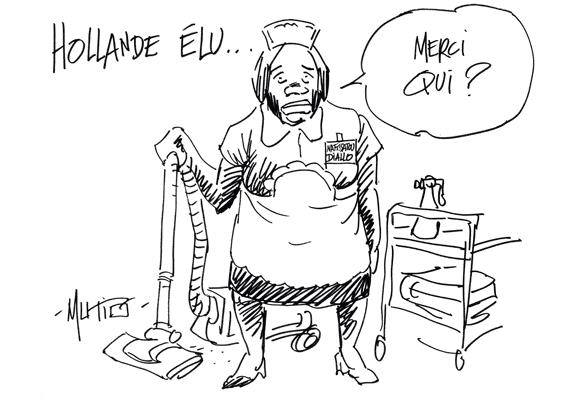 HOLLANDE ÉLU...
MERCI
QUI ?
NAFISSATOU
DIALLO